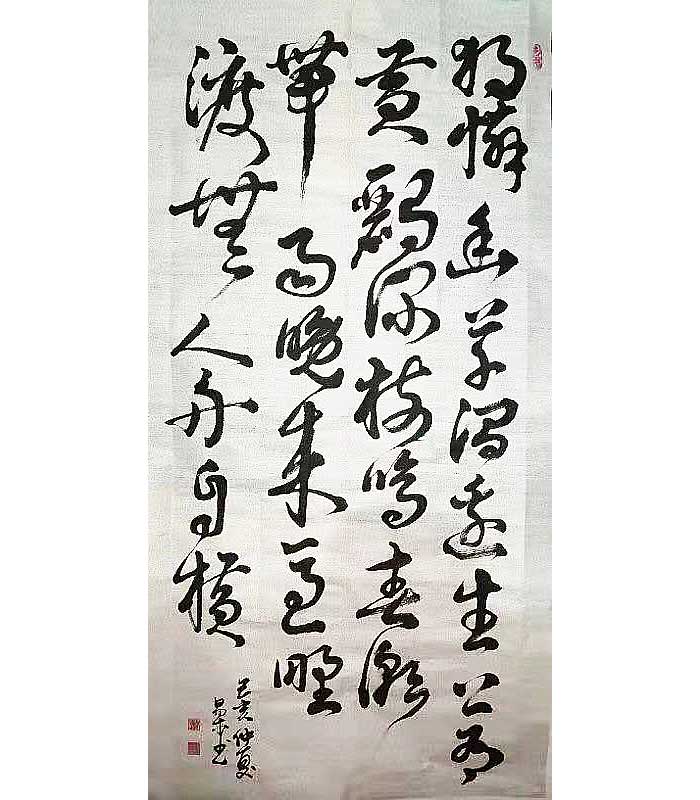 独憐幽草澗邊生上有
黄鸝深樹鳴春潮
帶雨晚來急野
渡無人舟自橫
己亥仲夏
书